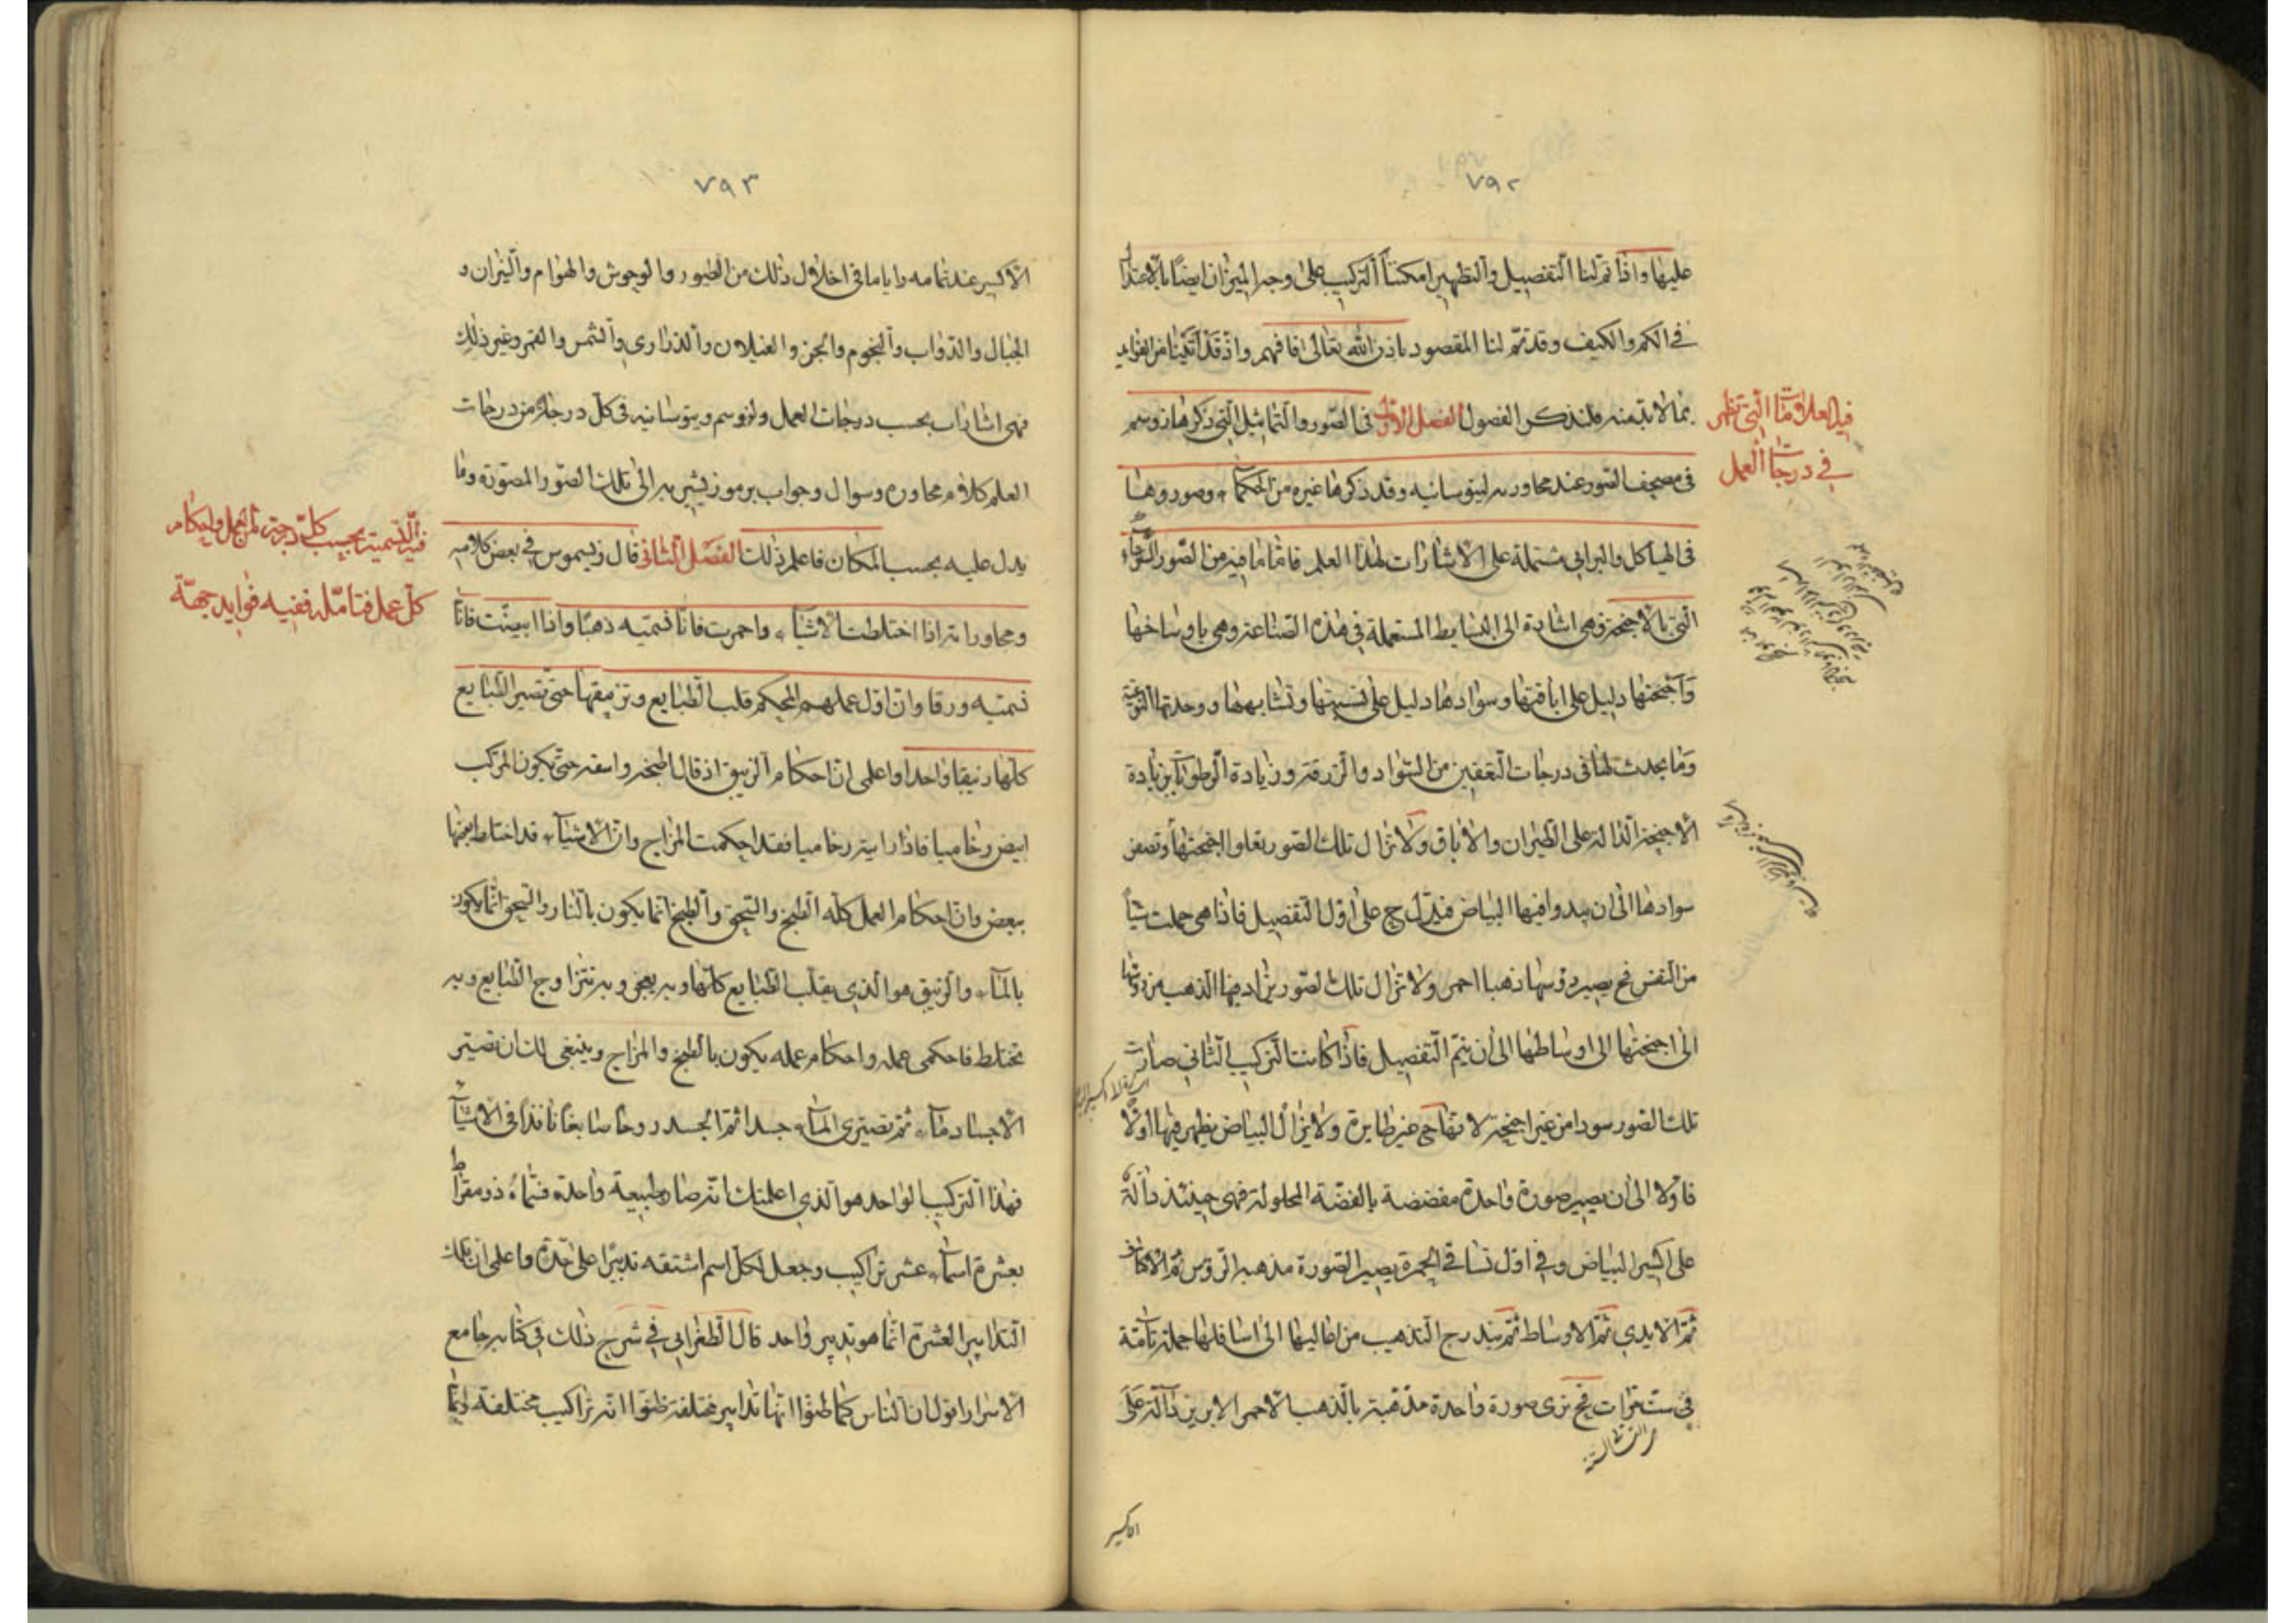 ٧٩٢
عليها واذا تم لنا التفصيل والتطهير امكننا التركيب على وجه الميزان ايضا بالاعتدال
فى الكم والكيف وقد تم لنا المقصود باذن الله تعالى فافهم واذ قد اتينا من الفوايد
بما لا بد منه فلنذكر الفصول الفصل الاول فى الصور والتماثيل التى ذكرها زوسم
فى مصحف الصور عند محاورته لينوسانيه وقد ذكرها غيره من الحكماء وصوروها
فى الهياكل والبرابى مشتملة على الاشارات لهذا العلم فاما ما فيه من الصور
التى بالاجنحة فهى اشارة الى البسايط المستعملة فى هذه الصناعة وهى باوساخها
واجنحتها دليل على اباقتها وسوادها دليل على نسبتها وتشابهها ووحدتها النوعية
وما يحدث لها فى درجات التعفين من السواد والزرقة وزيادة الرطوبة بزيادة
الاجنحة الدالة على الطيران والاباق ولا تزال تلك الصور بغاوا اجنحتها وتصفر
سوادها الى ان يبدو فيها البياض فيدل ح على اول التفصيل فاذا هى حملت شيأ
من النفس فح يصير رؤسها ذهبا احمر ولا تزال تلك الصور يزاد فيها الذهب من رؤسها
الى اجنحتها الى اوساطها الى ان يتم التفصيل فاذا كانت التركيب الثانى صارت
تلك الصور سودا من غير اجنحة لانها ح غير طايرة ولا يزال البياض يظهر فيها اولا
فاولا الى ان يصير صورة واحدة مفضضة بالفضة المحلولة فهى حينئذ دالة
على اكسير البياض وفى اول تساقى الحمرة يصير الصورة مذهبة الرؤس ثم الاكتاف
ثم الايدى ثم الاوساط ثم يندرج التذهيب من اعاليها الى اسافلها جملة تامة
فى ست مرات فح ترى صورة واحدة مذهبة بالذهب الاحمر الابريز دالة على
الاكسير
فيه العلامات التى تظهر
فى درجات العمل
٧٩٣
الاكسير عند تمامه واما ما فى اخلال ذلك من الطيور والوحوش والهوام والنيران و
الجبال والدواب والنجوم والجن والغيلان والدرارى والشمس والقمر وغير ذلك
فهى اشارات بحسب درجات العمل ولزوسم وينوسانيه فى كل درجة من درجات
العلم كلام محاورة وسوال وجواب برموز يشير به الى تلك الصور المصورة وما
يدل عليه بحسب المكان فاعلم ذلك الفصل الثانى قال زيسموس فى بعض كلامه
ومحاوراته اذا اختلطت الاشياء واحمرت فانا نسميه ذهبا واذا ابيضت فانا
نسميه ورقا وان اول عملهم المحكم قلب الطبايع وتزميقها حتى تصير الطبايع
كلها زنيقا واحدا واعلمى ان احكام الزيبق اذ قال اطبخه واسقه حتى يكون المركب
ابيض رخاميا فاذا رايته رخاميا فقد احكمت المزاج وان الاشياء قد اختلط بعضها
ببعض وان احكام العمل كله الطبخ والسحق والطبخ انما يكون بالنار والسحق انما يكون
بالماء والزنيق هو الذى يقلب الطبايع كلها وبه يعجن وبه تتزاوج الطبايع وبه
تختلط فاحكمى عمله واحكام عمله يكون بالطبخ والمزاج وينبغى لك ان تصيرى
الاجساد ماء ثم تصيرى الماء جسدا ثم الجسد روحا صابغا نافذا فى الاشياء
فهذا التركيب الواحد هو الذى اعلمتك انه صار طبيعة واحدة فسماه ذومقراط
بعشرة اسماء عشر تراكيب وجعل لكل اسم اشتقه تدبيرا على حدة واعلمى ان تلك
التدابير العشرة انما هو تدبير واحد قال الطغرابى فى شرح ذلك فى كتابه جامع
الاسرار اقول ان الناس كما ظنوا انها تدابير مختلفة ظنوا انه تراكيب مختلفة وانما
فيه التسمية بحسب كل درجة من العمل واحكام
كل عمل فتامله ففيه فوايد جمة